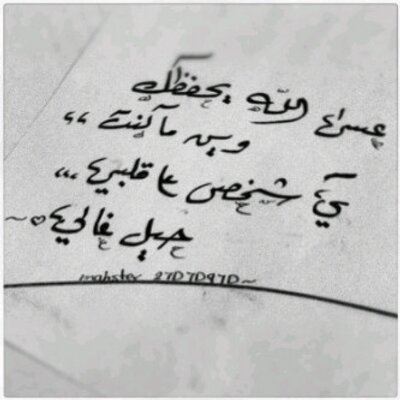 عسى الله يحفظك
وين ما كنت ,,
يَ شخص ع قلبي ,,,
حيل غالي ♡~
mahster 27D7D97D~